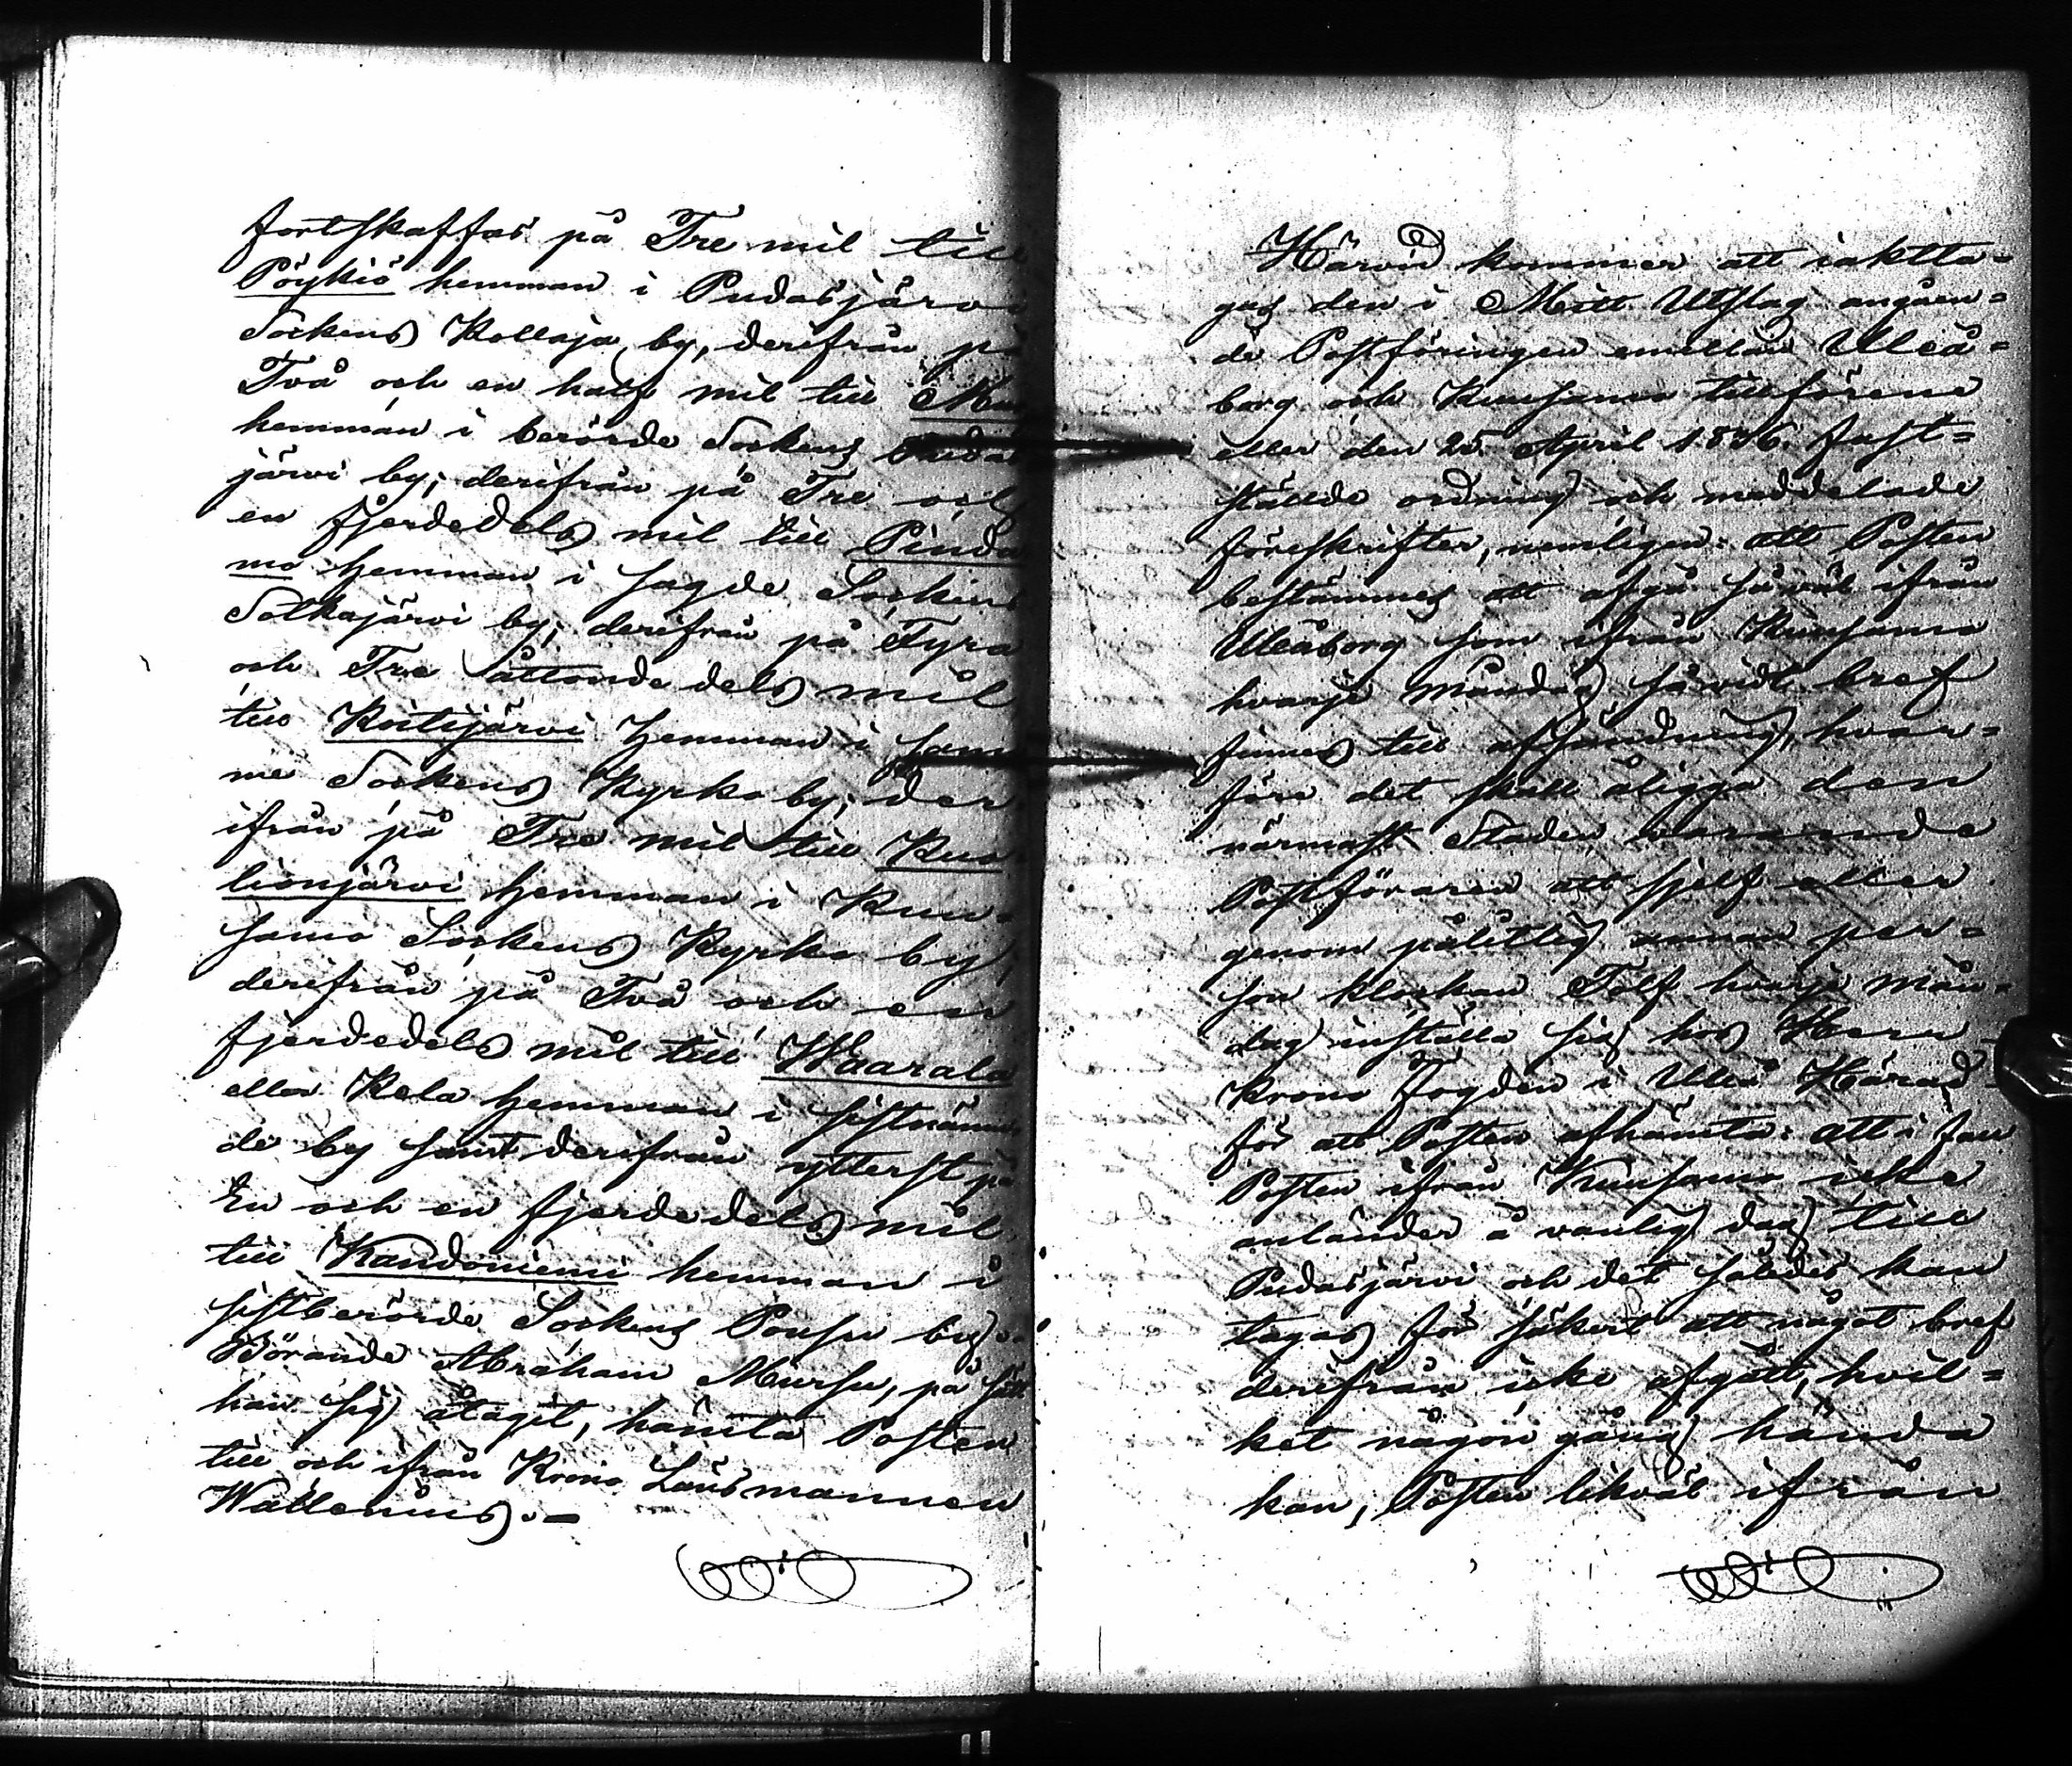 fortskaffas på Tre mil till
Pöykiö hemman i Pudasjärvi
Sockens Kollaja by, derifrån på
Två och en half mil till
hemman i berörde Sockens Pudas
järvi by; derifrån på Tre och
en fjerdedels mil till Pinda
mo hemman i sagde Sockens
Sotkajärvi by; derifrån på Fyra
och Tre åttondedels mil
till Koitijärvi hemman i sam
me Sockens Kyrko by; der
ifrån på Tre mil till Kuo
lionjärvi hemman i Kuu-
samo Sockens Kyrko by;
derifrån på Två och en
fjerdedels mil till Waarala
eller Kela hemman i sistnämn
de by samt derifrån ytterst på
En och en fjerdedels mil
till Kandoniemi hemman i
sistberörde Sockens Pousu by.
Börande Abraham Mursu, på sätt
han sig åtagit, hämta Posten
till och ifrån Krono Länsmannen
Wallenius.
Härvid kommer att iaktta-
gas den i Mitt Utslag angåen-
de Postföringen emellan Uleå-
borg och Kuusamo tillförene
eller den 25 April 1836 fast-
ställde ordning och meddelade
föreskrifter, nemligen: att Posten
bestämmes att afgå så väl ifrån
Uleåborg som ifrån Kuusamo
hvarje Måndag så vidt bref
finnes till afsändning, hvar-
före det skall åligga den
närmast Staden varande
Postföraren att sjelf eller
genom pålitlig annan per-
son klockan Tolf hvarje Mån-
dag inställa sig hos Herr
Krono Fogden i Uleå Härad
för att Posten afhämta: att i fall
Posten ifrån Kuusamo icke
anländer å vanlig dag till
Pudasjärvi och det således kan
tagas för säkert att något bref
derifrån icke afgått, hvil-
ket någon gång hända
kan, Posten likväl ifrån